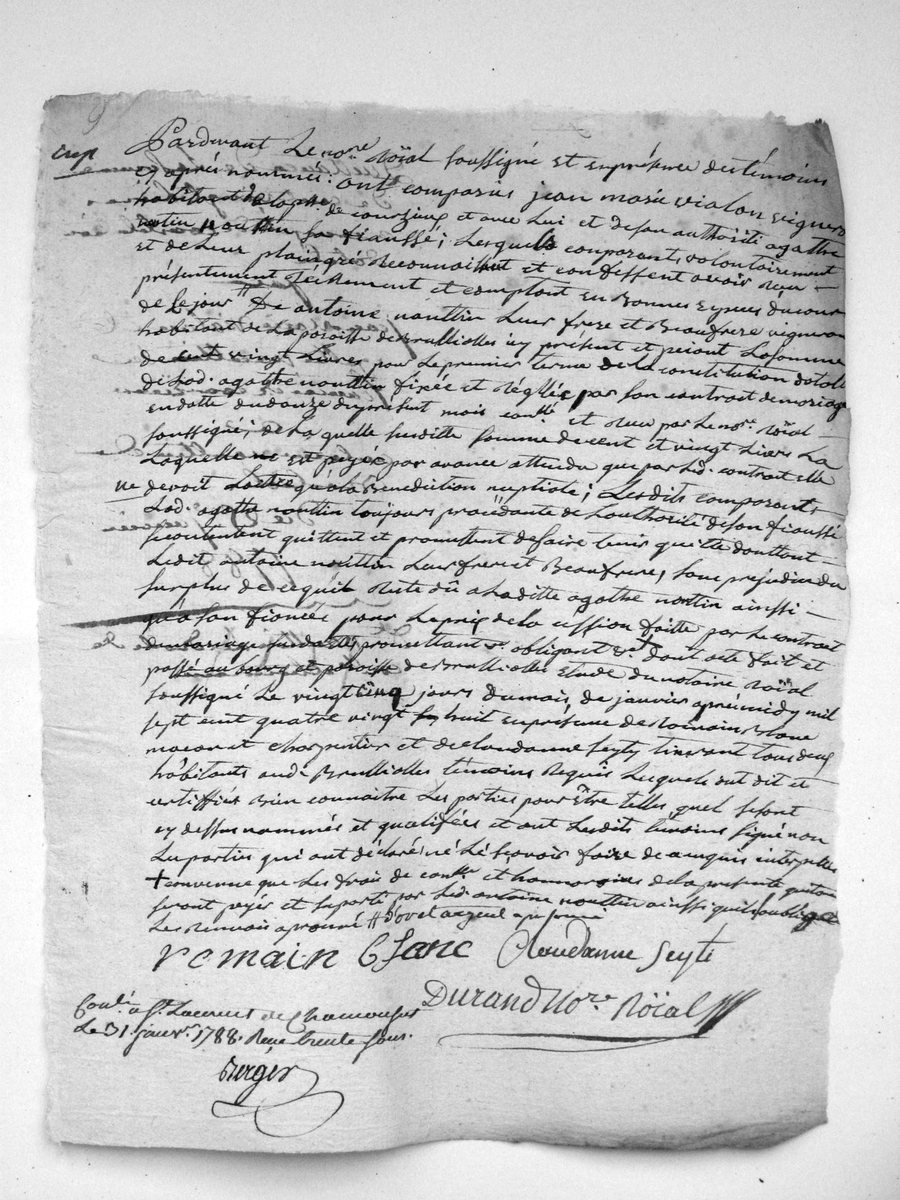 9
Exp
Pardevant Le no.re Roïal soussigné et en présence des témoins
cy après nommés: ont comparus jean marie vialon vigneron
habitant de la p.sse de courzieux et avec Lui et de son authorité agathe
nouttin sa fiaussé; Lesquels comparant, volontairement
et de Leur plain gré Reconnaissent et confessent avoir Reçu
présentement Réellement et comptant en Bonnes espèces du cour
de Le jour # De antoine nouttin Leur frere et Beaufrere vigneron
habitant de La paroisse de Brulliolles icy présent et païant La somme
de cent vingt Livres pour Le premier terme de la constitution dotale
de Lad. agathe nouttin fixée et Réglée par son contrat de mariage
en datte du douze du présent mois cont.lé et Reçu par Le no.re Roïal
soussigné; de La quelle susditte somme de cent et vingt Livres La
Laquelle est payée par avance attendu que par Led. contrat elle
ne devoit L'aettre qu'a la Benediction nuptiale; Lesdits comparants
Lad. agatta nouttin toujours procédante de L'authorité de son fiaussé
se contentent quittent et promettent de faire tenir quitte
Ledit antoine nouttin Leur frere et Beaufrere, sans prejudice du
surplus de ce quil Reste dû a Laditte agathe nouttin ainssi
qu'a son fiancée pour Le prix de la cession faitte par Le contrat
de mariage susdatté; promettant &. obligant &.a dont acte fait et
passé au bourg et paroisse de Brulliolles Etude du notaire Roïal
soussigné Le vingt cinq jours du mois de janvier après midy mil
sept cent quatre vingt huit en présence de Romain Blanc
macon et charpentier et de claudanne seyty tisserant tous deux
habitants aud. Brulliolles témoins Requis Lesquels ont dit et
certiffiés Bien connaitre Les parties pour être telles quel se sont
cy dessus nommés et qualifiées et ont Lesdits témoins signé non
Les parties qui ont déclaré ne Le sçavoir faire de ce enquis interpellés
+ convenue que Les frais de cont.lle et honnoraires de la présente quitance
seront payer et suporté par Led. antoine nouttin ainssi quil s'oblige
Les Renvois aprouvé #
romain blanc Claudanne Seyte
Durand No.re Roïal
Con.lé à S.t Laurent de Chamousset
Le 31. janv.r 1788. Reçu trente sous.
Berger